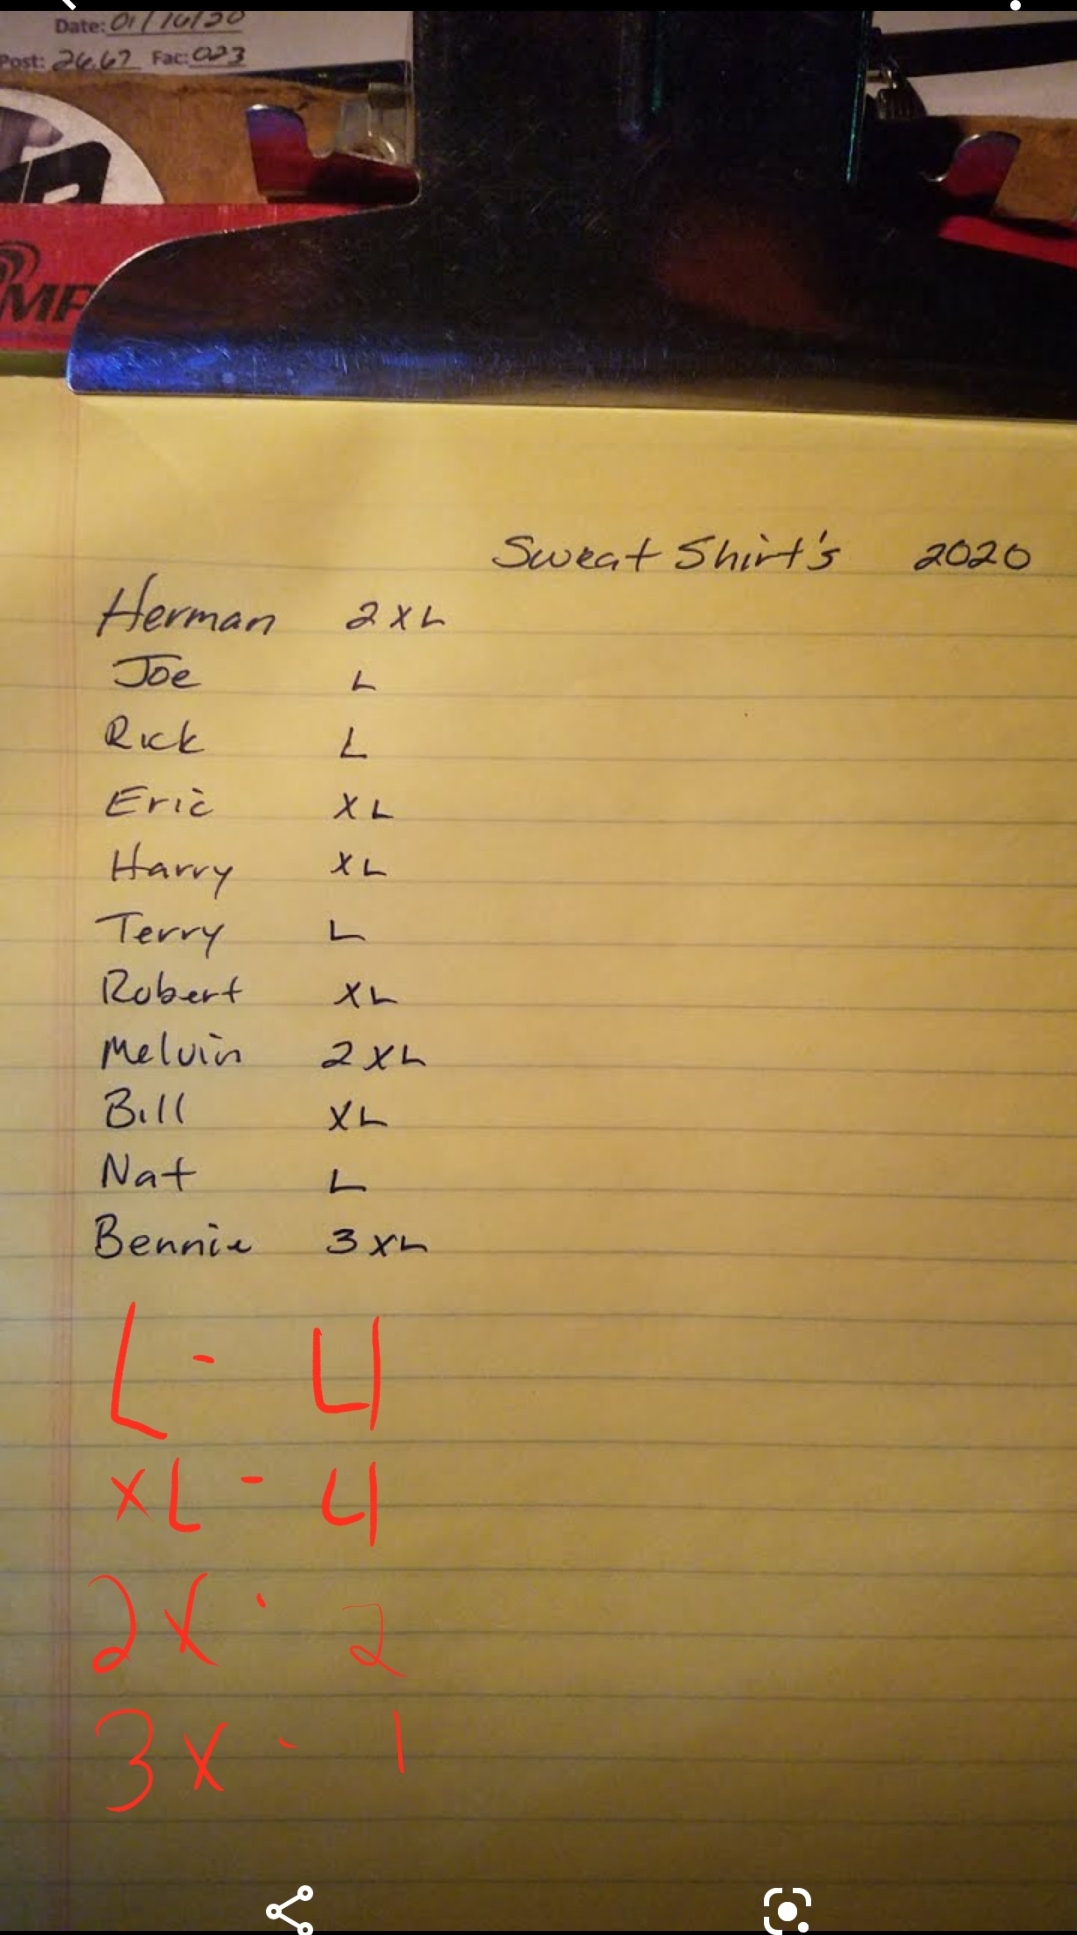 Date: 01/16/20
Post: 26.67 Fac: 023
Sweat Shirt's 2020
Herman 2XL
Joe L
Rick L
Eric XL
Harry XL
Terry L
Robert XL
Melvin 2XL
Bill XL
Nat L
Bennie 3XL
L - 4
XL - 4
2X - 2
3X - 1